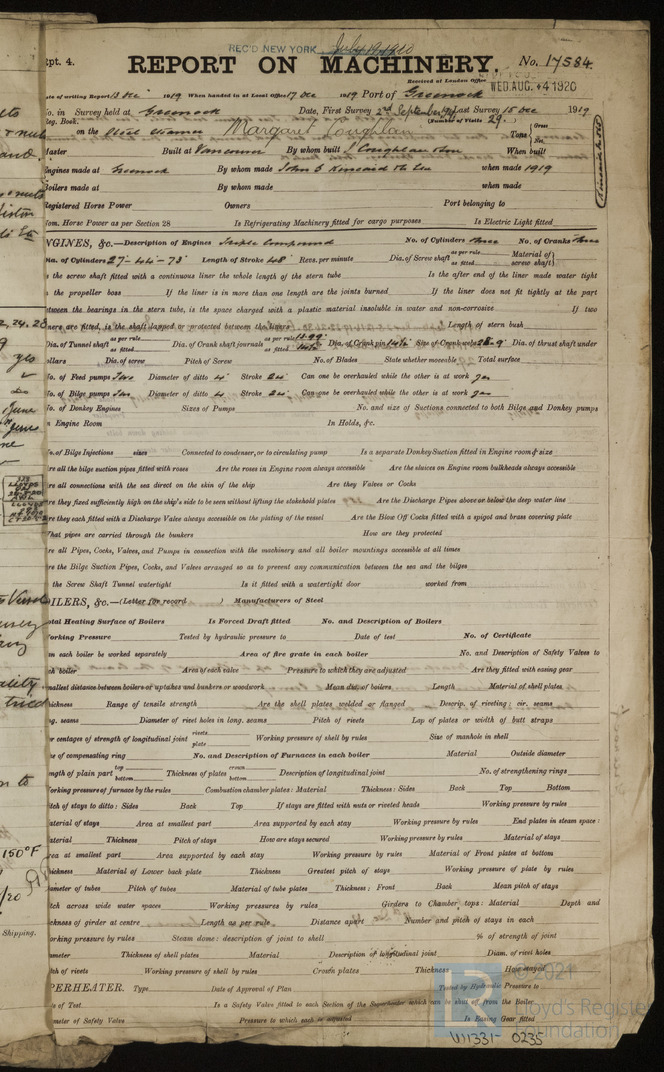 REC'D NEW YORK July 19 1920
pt. 4. REPORT ON MACHINERY. No. 17584
Received at London Office WED. AUG. 4 1920
te of writing Report 13 Dec 1919 When handed in at Local Office 17 Dec 1919 Port of Greenock
o. in Survey held at Greenock Date, First Survey 2nd September Last Survey 15 Dec 1919
eg. Book. (Number of Visits 29.)
on the Steel Steamer Margaret Coughlan Tons Gross Net
aster Built at Vancouver By whom built J Coughlan & Son When built
ngines made at Greenock By whom made John G Kincaid & Co Ltd when made 1919
oilers made at By whom made when made
egistered Horse Power Owners Port belonging to
om. Horse Power as per Section 28 Is Refrigerating Machinery fitted for cargo purposes Is Electric Light fitted
NGINES, &c.—Description of Engines Triple Compound No. of Cylinders three No. of Cranks three
ia. of Cylinders 27-44-73 Length of Stroke 48 Revs. per minute Dia. of Screw shaft as per rule as fitted Material of screw shaft
s the screw shaft fitted with a continuous liner the whole length of the stern tube Is the after end of the liner made water tight
the propeller boss If the liner is in more than one length are the joints burned If the liner does not fit tightly at the part
etween the bearings in the stern tube, is the space charged with a plastic material insoluble in water and non-corrosive If two
ners are fitted, is the shaft lapped or protected between the liners Length of stern bush
ia. of Tunnel shaft as per rule as fitted Dia. of Crank shaft journals as per rule as fitted Dia. of Crank pin Size of Crank webs Dia. of thrust shaft under
ollars Dia. of screw Pitch of Screw No. of Blades State whether moveable Total surface
o. of Feed pumps Two Diameter of ditto 4 Stroke 24 Can one be overhauled while the other is at work yes
o. of Bilge pumps Two Diameter of ditto 4 Stroke 24 Can one be overhauled while the other is at work yes
o. of Donkey Engines Sizes of Pumps No. and size of Suctions connected to both Bilge and Donkey pumps
n Engine Room In Holds, &c.
o. of Bilge Injections sizes Connected to condenser, or to circulating pump Is a separate Donkey Suction fitted in Engine room & size
re all the bilge suction pipes fitted with roses Are the roses in Engine room always accessible Are the sluices on Engine room bulkheads always accessible
re all connections with the sea direct on the skin of the ship Are they Valves or Cocks
re they fixed sufficiently high on the ship's side to be seen without lifting the stokehold plates Are the Discharge Pipes above or below the deep water line
re they each fitted with a Discharge Valve always accessible on the plating of the vessel Are the Blow Off Cocks fitted with a spigot and brass covering plate
hat pipes are carried through the bunkers How are they protected
re all Pipes, Cocks, Valves, and Pumps in connection with the machinery and all boiler mountings accessible at all times
re the Bilge Suction Pipes, Cocks, and Valves arranged so as to prevent any communication between the sea and the bilges
the Screw Shaft Tunnel watertight Is it fitted with a watertight door worked from
OILERS, &c.—(Letter for record ) Manufacturers of Steel
otal Heating Surface of Boilers Is Forced Draft fitted No. and Description of Boilers
orking Pressure Tested by hydraulic pressure to Date of test No. of Certificate
n each boiler be worked separately Area of fire grate in each boiler No. and Description of Safety Valves to
ch boiler Area of each valve Pressure to which they are adjusted Are they fitted with easing gear
mallest distance between boilers or uptakes and bunkers or woodwork Mean dia. of boilers Length Material of shell plates
hickness Range of tensile strength Are the shell plates welded or flanged Descrip. of riveting: cir. seams
ng. seams Diameter of rivet holes in long. seams Pitch of rivets Lap of plates or width of butt straps
er centages of strength of longitudinal joint rivets plate Working pressure of shell by rules Size of manhole in shell
ze of compensating ring No. and Description of Furnaces in each boiler Material Outside diameter
ength of plain part top bottom Thickness of plates crown bottom Description of longitudinal joint No. of strengthening rings
orking pressure of furnace by the rules Combustion chamber plates: Material Thickness: Sides Back Top Bottom
itch of stays to ditto: Sides Back Top If stays are fitted with nuts or riveted heads Working pressure by rules
aterial of stays Area at smallest part Area supported by each stay Working pressure by rules End plates in steam space:
aterial Thickness Pitch of stays How are stays secured Working pressure by rules Material of stays
rea at smallest part Area supported by each stay Working pressure by rules Material of Front plates at bottom
hickness Material of Lower back plate Thickness Greatest pitch of stays Working pressure of plate by rules
iameter of tubes Pitch of tubes Material of tube plates Thickness: Front Back Mean pitch of stays
itch across wide water spaces Working pressures by rules Girders to Chamber tops: Material Depth and
ickness of girder at centre Length as per rule Distance apart Number and pitch of stays in each
orking pressure by rules Steam dome: description of joint to shell % of strength of joint
ameter Thickness of shell plates Material Description of longitudinal joint Diam. of rivet holes
tch of rivets Working pressure of shell by rules Crown plates Thickness How stayed
PERHEATER. Type Date of Approval of Plan Tested by Hydraulic Pressure to
te of Test Is a Safety Valve fitted to each Section of the Superheater which can be shut off from the Boiler
ameter of Safety Valve Pressure to which each is adjusted Is Easing Gear fitted
© 2021
Lloyd's Register
Foundation
W1331-0235
150°F
Shipping.